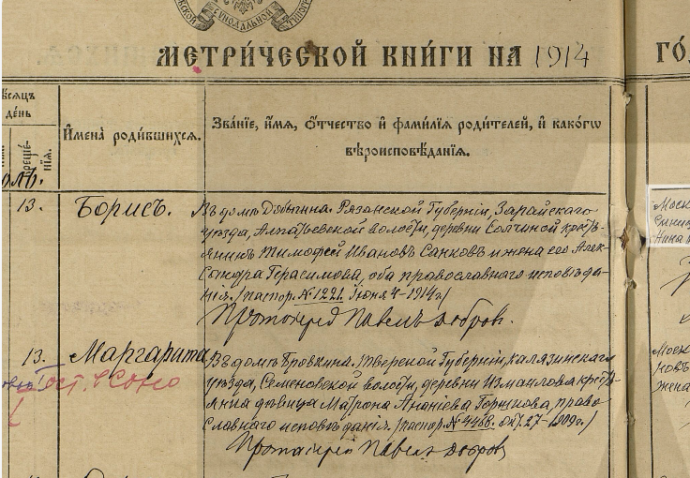 СѴНОДАЛЬНОЙ
МЕТРИ́ЧЕСКОЙ КНИ́ГИ НА 1914 ГО́
Зва́нїе, и҆́мѧ, ѻ҆́тчество и҆ фами́лїѧ роди́телей, и҆ како́гѡ
день
И҆мена̀ роди́вшихсѧ.
вѣроисповѣ́данїѧ.
13.
Борисъ.
Въ домѣ Добынина. Рязанской Губерніи, Зарайскаго
уѣзда, Алпатьевской волости, деревни Солчиной кресть-
янинъ Тимофей Ивановъ Санковъ и жена его Алек-
сандра Герасимова, оба православнаго исповѣда-
нія. /паспор. № 1221. Іюня 4-1914 г/
Протоіерей Павелъ Добров.
13.
Маргарита
Въ домѣ Бровкина. Тверской Губерніи, Калязинскаго
уѣзда, Семеновской волости, деревни Измаилова кресть-
янка дѣвица Матрона Ананіева Горшкова, право-
славнаго исповѣданія. /паспор. № 4468. 27-1909 г./
Протоіерей Павелъ Добров
Моск
жена